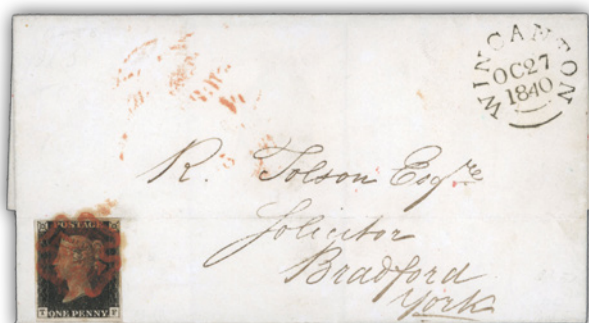 WINCANTON
OC27
1840
R. Tolson Esqre
Solicitor
Bradford
York
POSTAGE
ONE PENNY